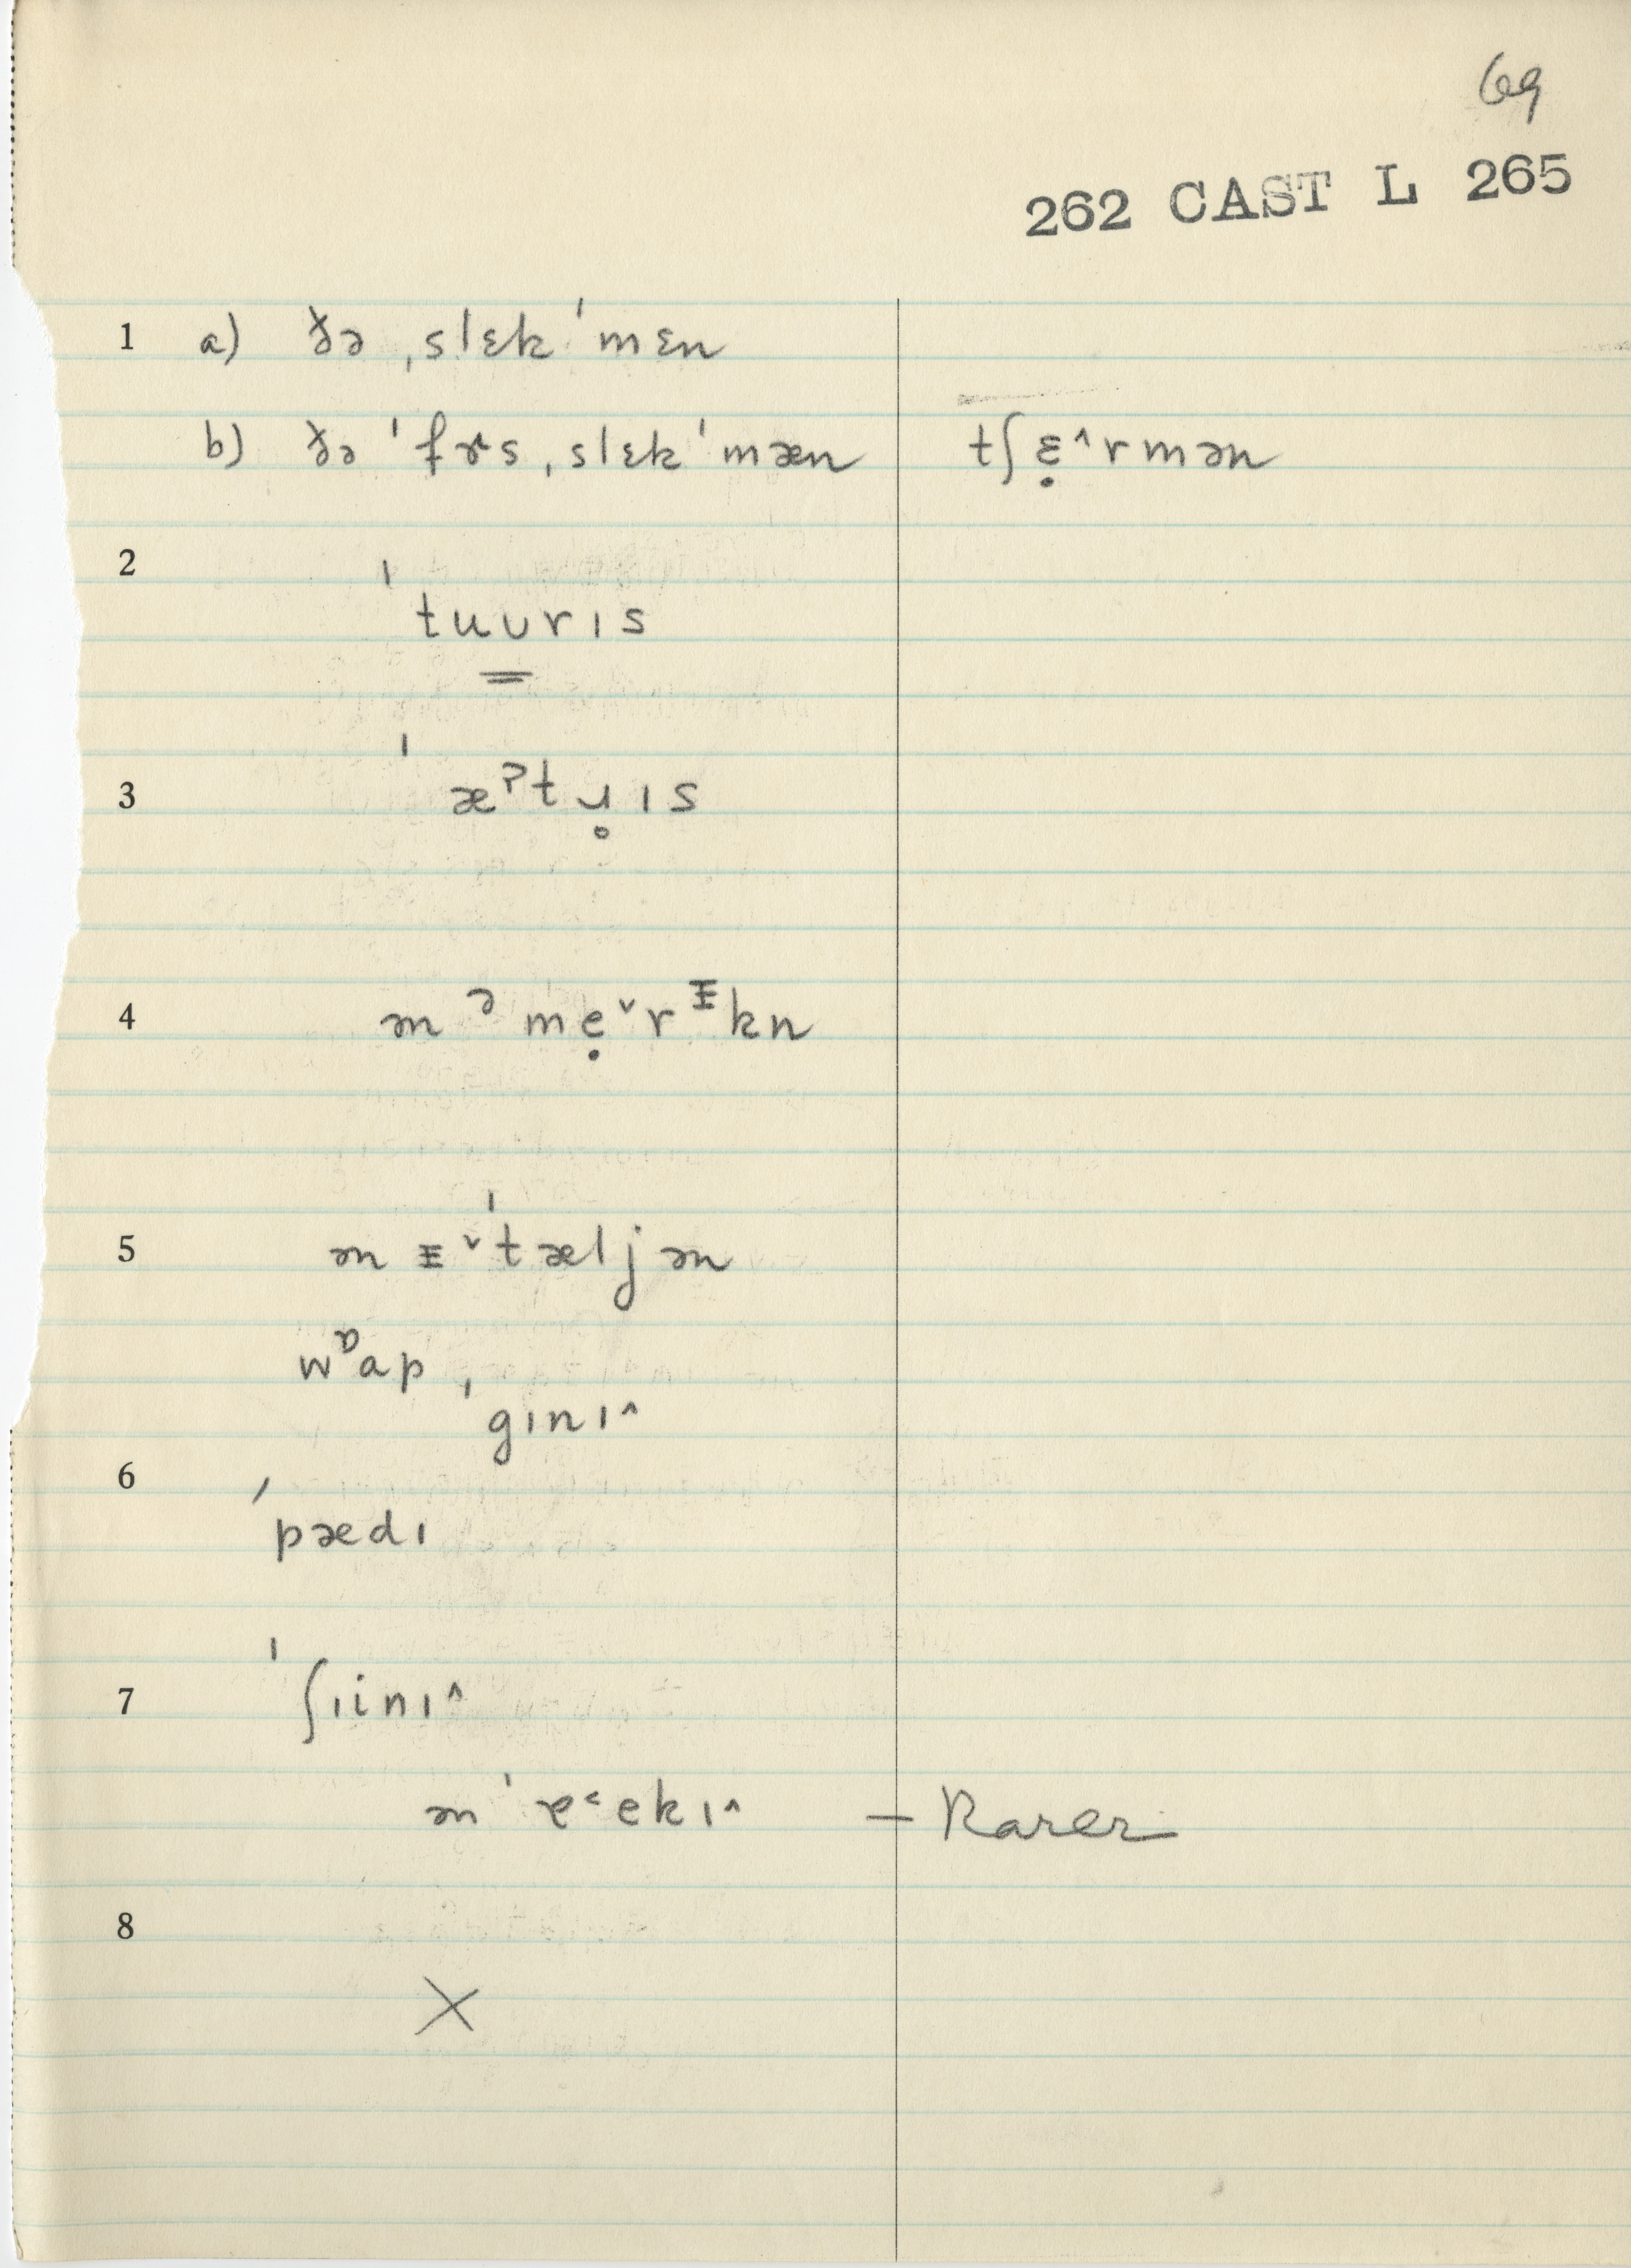 69
262 CAST L 265
1 a) ðə ˌslɛk ˈmɛn
b) ðə ˈfɝs ˌslɛk ˈmæn tʃɛ̣^rmən
2
ˈtuʊrɪs
3 ˈæˀtɥ̥ɪs
4 ən ᵊmẹˇrᵻkn
5 ən ᵻˇˈtæljən
wᶛap ˌ
gɪnɪ^
6
ˈpædɪ
7 ˈʃɪinɪ^
ən ˈɐ˂ekɪ^ — Rarer
8
X